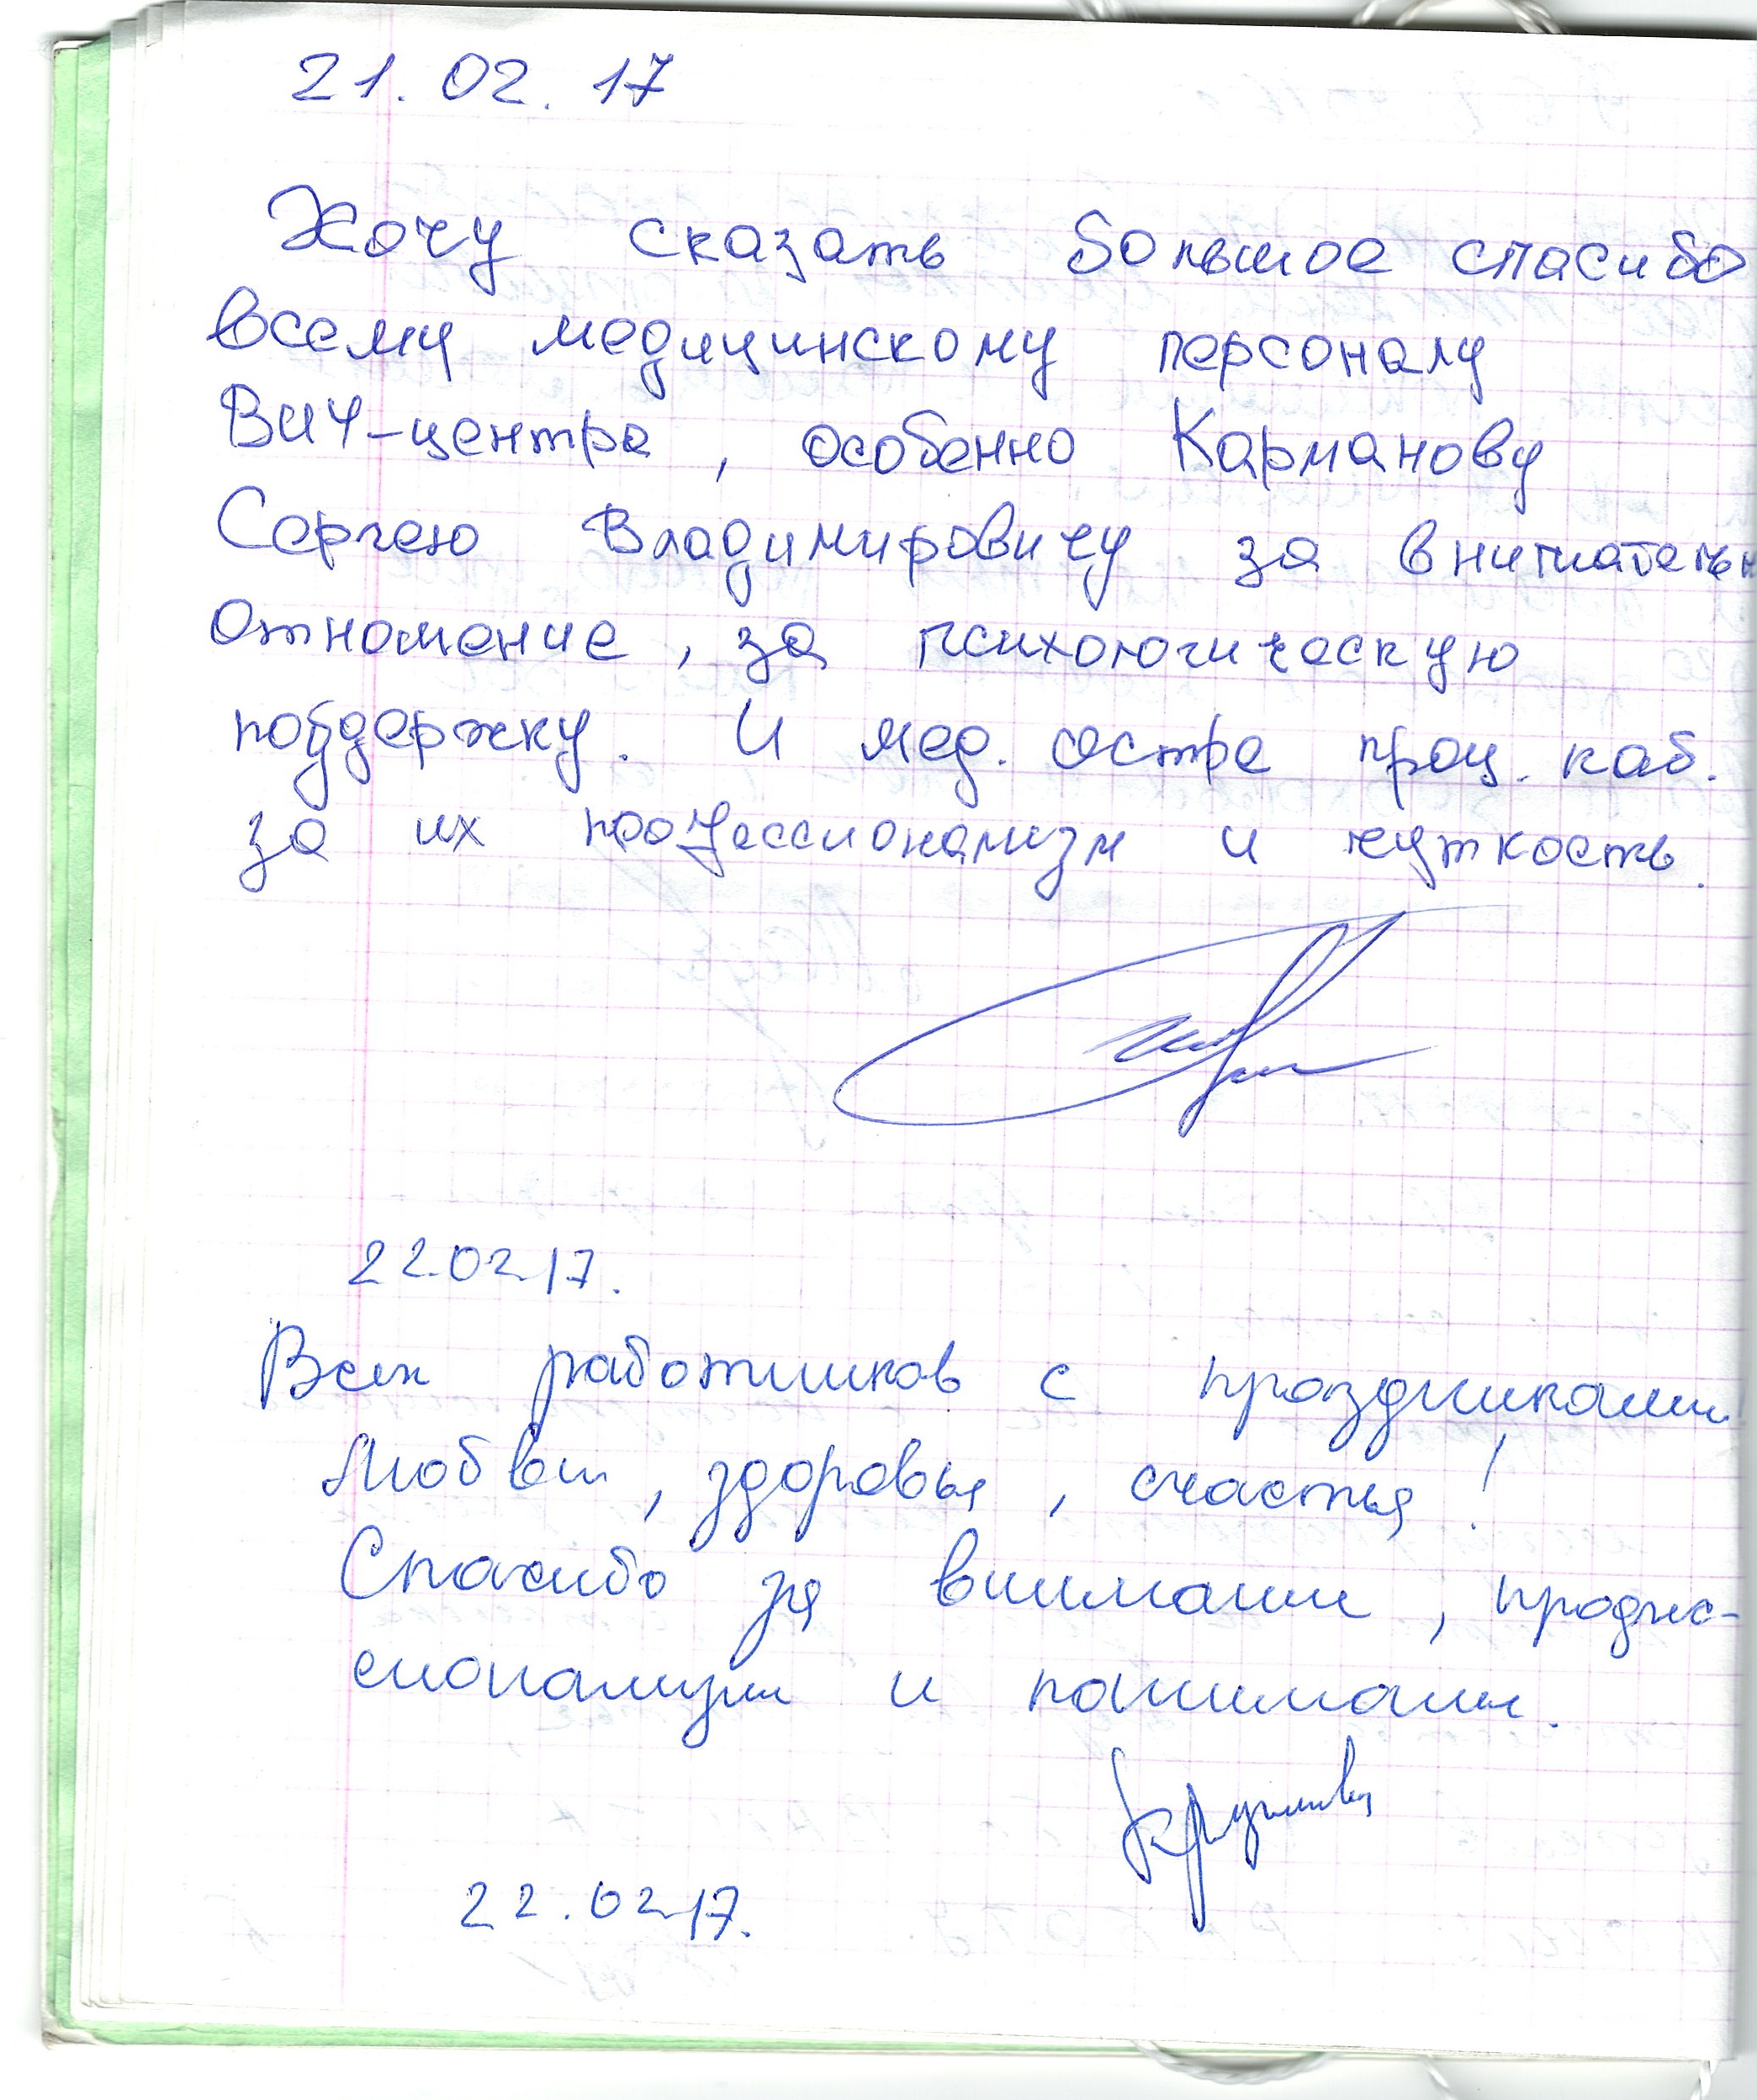 21.02.17
Хочу сказать большое спасибо
всему медицинскому персоналу
ВИЧ-центра, особенно Карманову
Сергею Владимировичу за внимательн
отношение, за психологическую
поддержку. И мед. сестре проц. каб.
за их профессионализм и чуткость.
22.02.17.
Всех работников с праздниками!
Любви, здоровья, счастья!
Спасибо за внимание, профес-
сионализм и понимание.
22.02.17.